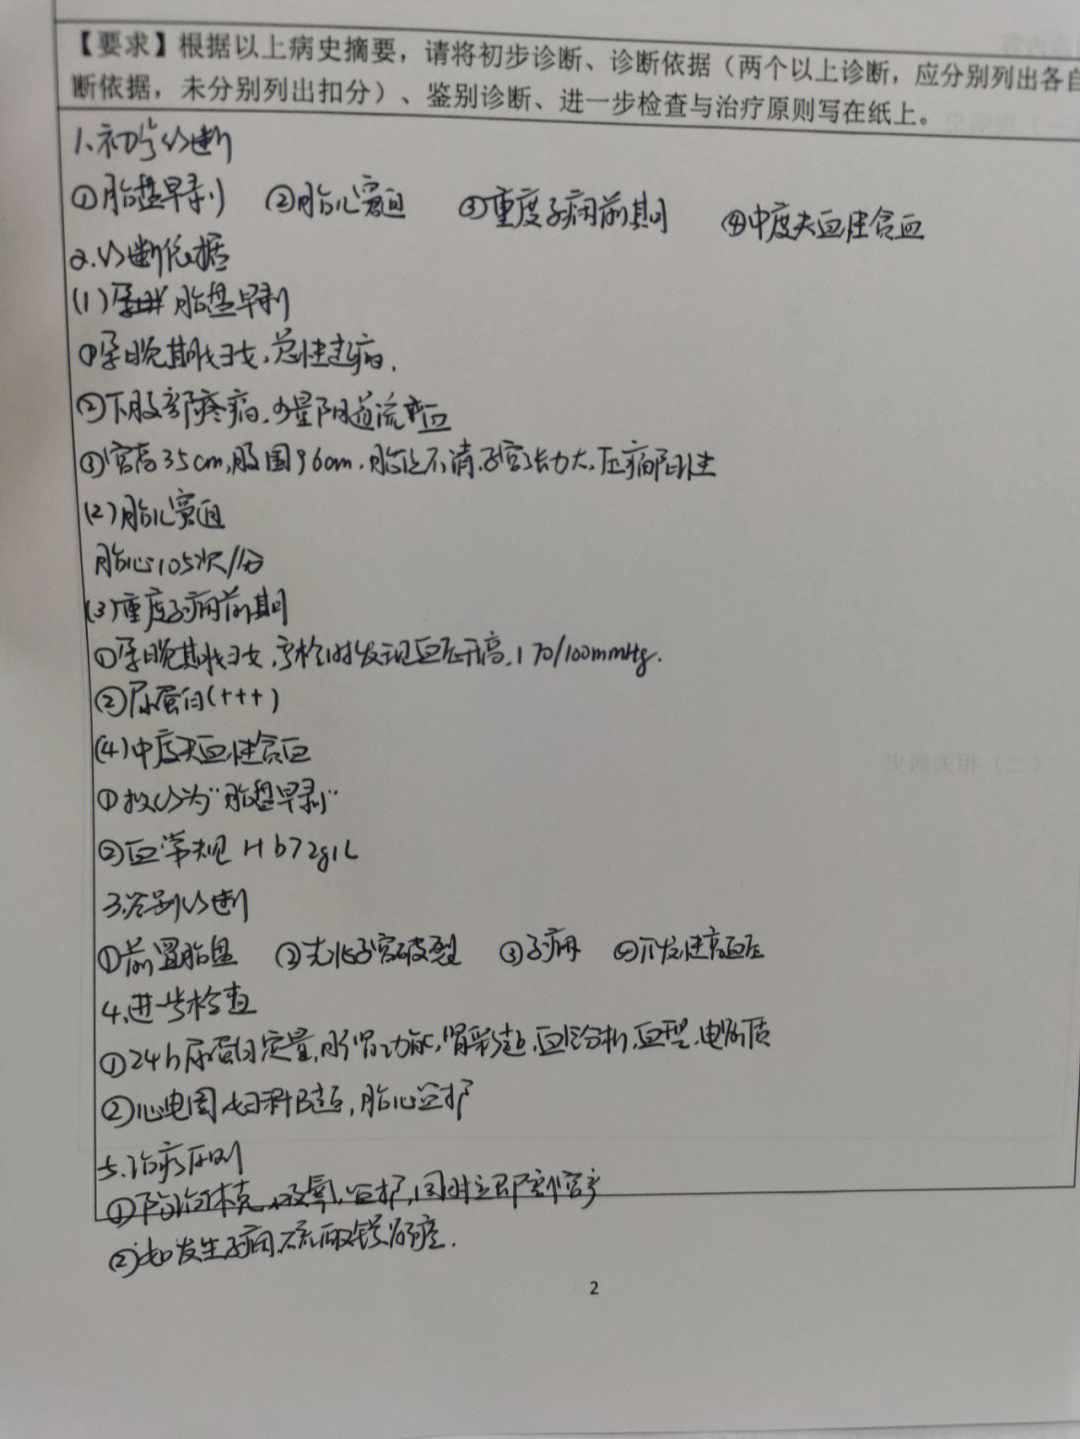 【要求】根据以上病史摘要，请将初步诊断、诊断依据（两个以上诊断，应分别列出各自
断依据，未分别列出扣分）、鉴别诊断、进一步检查与治疗原则写在纸上。
1.初步诊断
①胎盘早剥 ②胎儿窘迫 ③重度子痫前期 ④中度失血性贫血
2.诊断依据
(1)胎盘早剥
①孕晚期妇女,急性起病.
②下腹部疼痛,少量阴道流血
③宫高35cm,腹围96cm.胎位不清.子宫张力大,压痛阳性
(2)胎儿窘迫
胎心105次/分
(3)重度子痫前期
①孕晚期妇女,产检时发现血压升高,170/100mmHg.
②尿蛋白(+++)
(4)中度失血性贫血
①拟诊为"胎盘早剥"
②血常规 Hb72g/L
3.鉴别诊断
①前置胎盘 ②先兆子宫破裂 ③子痫 ④原发性高血压
4.进一步检查
①24h尿蛋白定量,肝肾功能,肾彩超,血气分析,血型,电解质
②心电图,妇科B超,胎心监护
5.治疗原则
①防治休克,吸氧,监护,同时立即剖宫产
②如发生子痫,硫酸镁解痉.
2
（二）相关病史